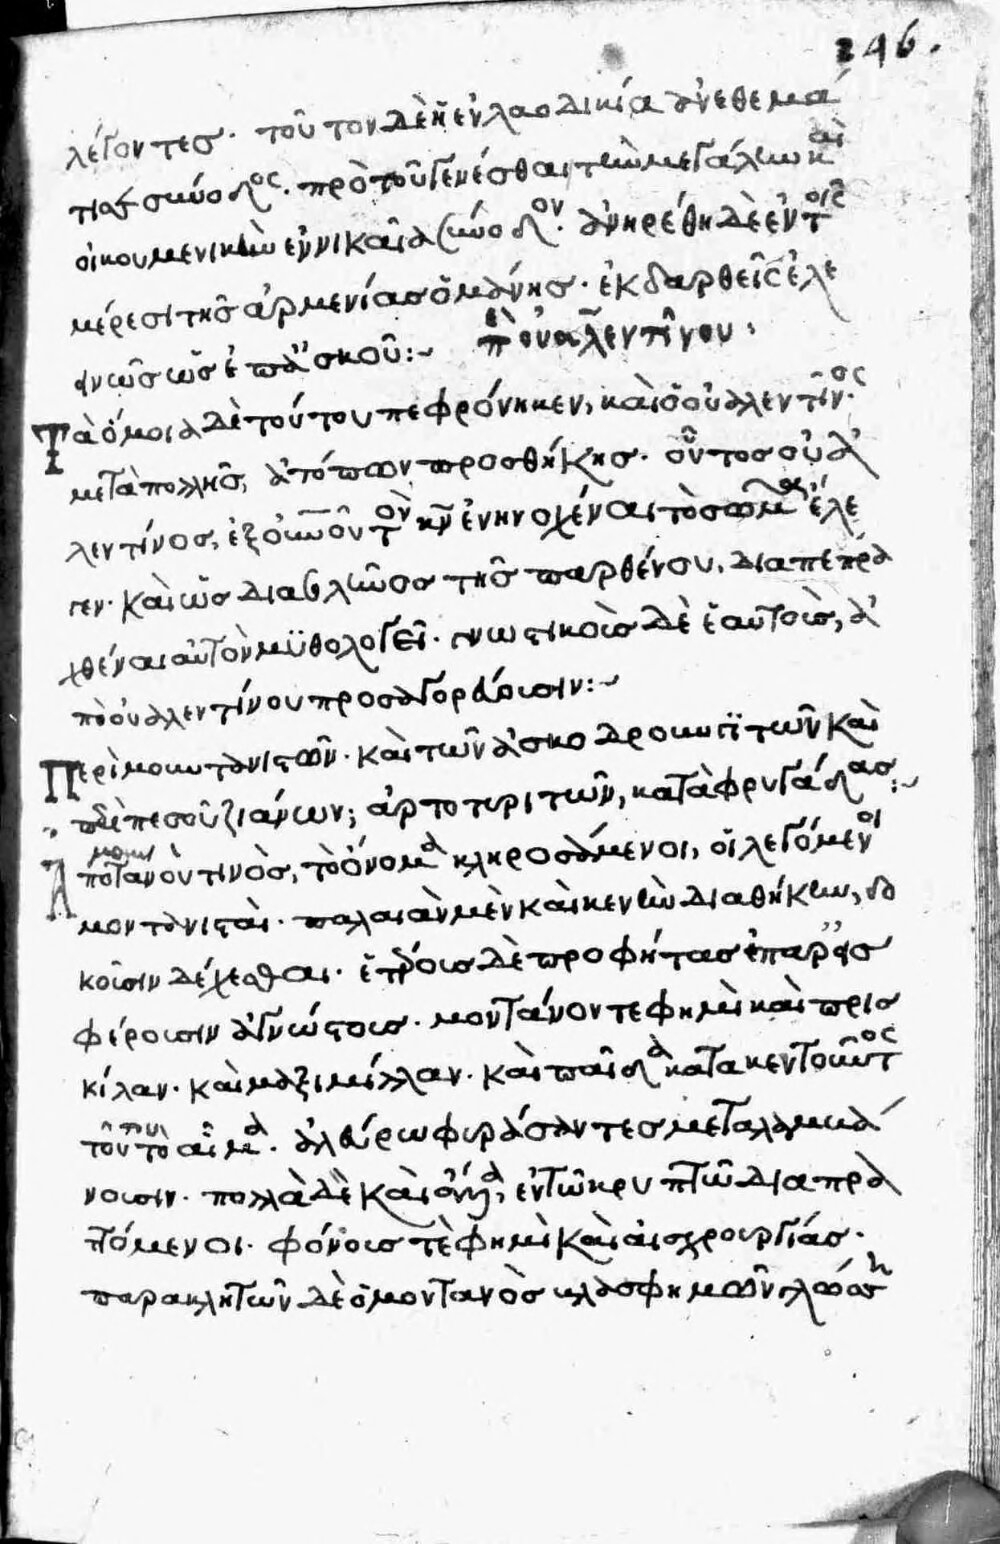 246.
λέγοντες· τοῦτον δὲ ἡ ἐν λαοδικία ἀνεθεμά
τισε σύνοδος. πρὸ τοῦ γενέσθαι τὴν μεγάλην καὶ
οἰκουμενικὴν ἐν νικαία σύνοδον. ἀνηρέθη δὲ ἐν τοῖς
μέρεσι τῆς ἀρμενίας ὁ μάνης· ἐκδαρθεὶς ἐλε
εινῶς ὡς ἐπὰ ἀσκοῦ:~ περὶ οὐαλεντίνου·
Τὰ ὅμοια δὲ τούτου πεφρόνηκεν, καὶ ὁ οὐαλεντῖνος·
μετὰ πολλῆς, ἀτόπων προσθήκης· οὗτος οὐα
λεντίνος, ἐξ οὐρανοῦ τὸν κν ἐνηνοχέναι τὸ σῶμα ἔλε
γεν· καὶ ὡς διὰ σωλῆνος τῆς παρθένου, διαπεπρᾶ
χθέναι αὐτὸν μϋθολογεῖ· γνωστικοὺς δὲ ἑαυτοὺς, ἀ
πὸ οὐαλεντίνου προσαγορεύουσιν:~
Περὶ μοντανιστῶν· καὶ τῶν ἀσκοδρουπϊτῶν καὶ
πεπουζιάνων; ἀρτοτυριτῶν, κατὰφρυγάδας:~
Ἀπὸ μοντανοῦ τινὸς, τὸ ὄνομα κληρωσάμενοι, οἱ λεγόμενοι
μοντανισταὶ· παλαιὰν μὲν καὶ καινὴν διαθήκην, δο
κοῦσιν δέχεσθαι· ἑτέρους δὲ προφήτας ἐπαρεις
φέρουσιν ἀγνώστους· μοντάνον τε φημὶ καὶ πρισ
κίλαν· καὶ μαξιμίλλαν· καὶ παῖδα κατακεντοῦντος
τούτου τὸ αἷμα. ἀλεύρω φυράσαντες μεταλαμβά
νουσιν· πολλὰ δὲ καὶ ἄλλα, ἐν τῶ κρυπτῶ διαπρα
τόμενοι· φόνους τὲ φημὶ καὶ αἰσχρουργίας·
παρακλητῶν δὲ ὁ μοντανὸς βλασφημῶν